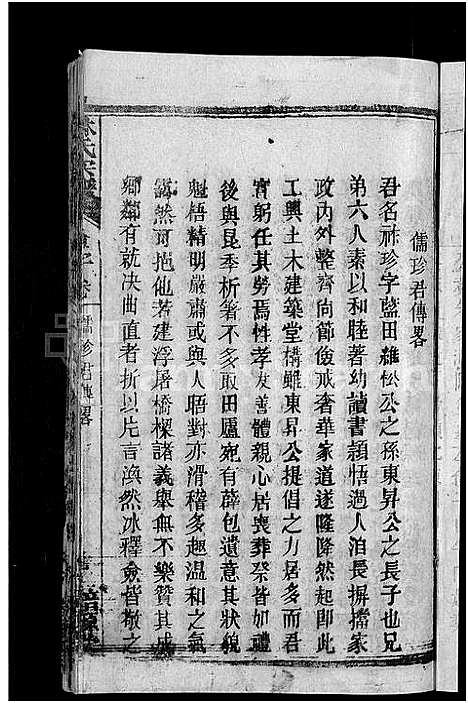 儒珍君傳畧
君名祚珍字藍田維松公之孫東昇公之長子也兄
弟六人素以和睦著幼讀書穎悟過人洎長摒擋家
政內外整齊尚節儉戒奢華家道遂隆隆然起即此
工興土木建築堂構雖東昇公提倡之力居多而君
實躬任其勞焉性孝友善體親心居喪葬祭皆如禮
後與昆季析爨不多取田廬宛有薛包遺意其狀貌
魁梧精明嚴肅或與人晤對亦滑稽多趣溫和之氣
藹然可挹他若建浮屠橋樑諸義舉無不樂贊其成
鄉鄰有就決曲直者折以片言渙然冰釋僉皆敬之
氏宗譜
儒珍君傳畧